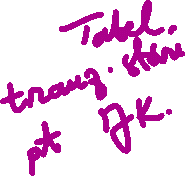 Tabel.
tranz. stări
pt JK.